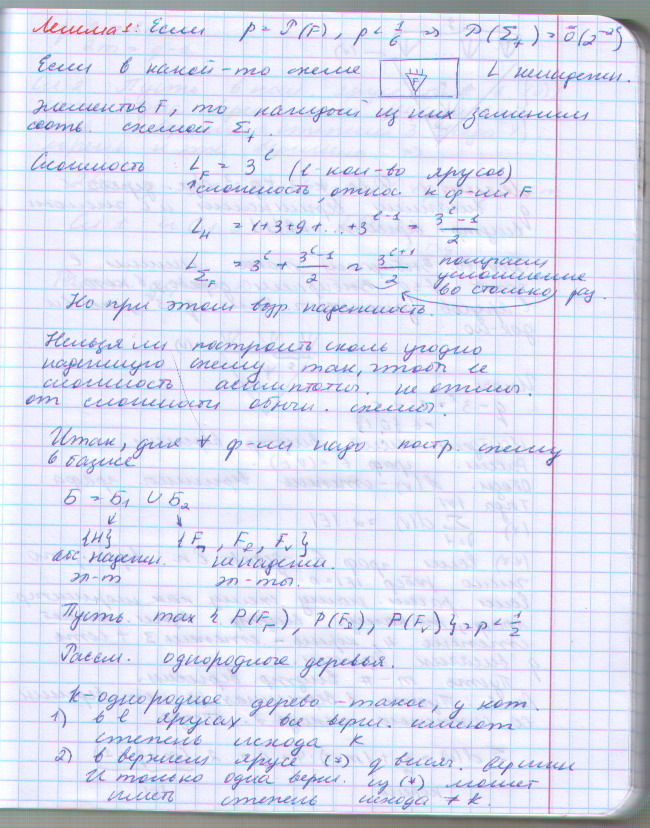 Лемма 1: Если p = P(F), p < 1/6 ⇒ P(Σ_F) = ō(2^{-2^l})
Если в какой-то схеме F L ненадежн.
элементов F, то каждый из них заменим
соотв. схемой Σ_F.
Сложность L_F = 3^l (l-кол-во ярусов)
сложность относ. к ф-ии F
L_H = 1+3+9+...+3^{l-1} = (3^l - 1)/2
L_{Σ_F} = 3^l + (3^l - 1)/2 ≈ 3^{l+1}/2 получаем
усложнение
во столько раз.
Но при этом возр. надежность.
Нельзя ли построить сколь угодно
надежную схему так, чтобы ее
сложность асимптотич. не отлич.
от сложности обычн. схемы.
Итак, для ∀ ф-ии надо постр. схему
в базисе
Б = Б₁ ∪ Б₂
{H} {F_⌐, F_&, F_∨}
абс. надежн. ненадежн.
эл-т эл-ты.
Пусть max {P(F_⌐), P(F_&), P(F_∨)} = p < 1/2
Рассм. однородные деревья.
K-однородное дерево - такое, у кот.
1) в l ярусах все верш. имеют
степень исхода K
2) в верхнем ярусе (*) q висяч. вершин
И только одна верш. из (*) может
иметь степень исхода ≠ K.